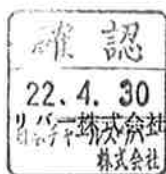 確認
22.4.30
リバー株式会社
株式会社